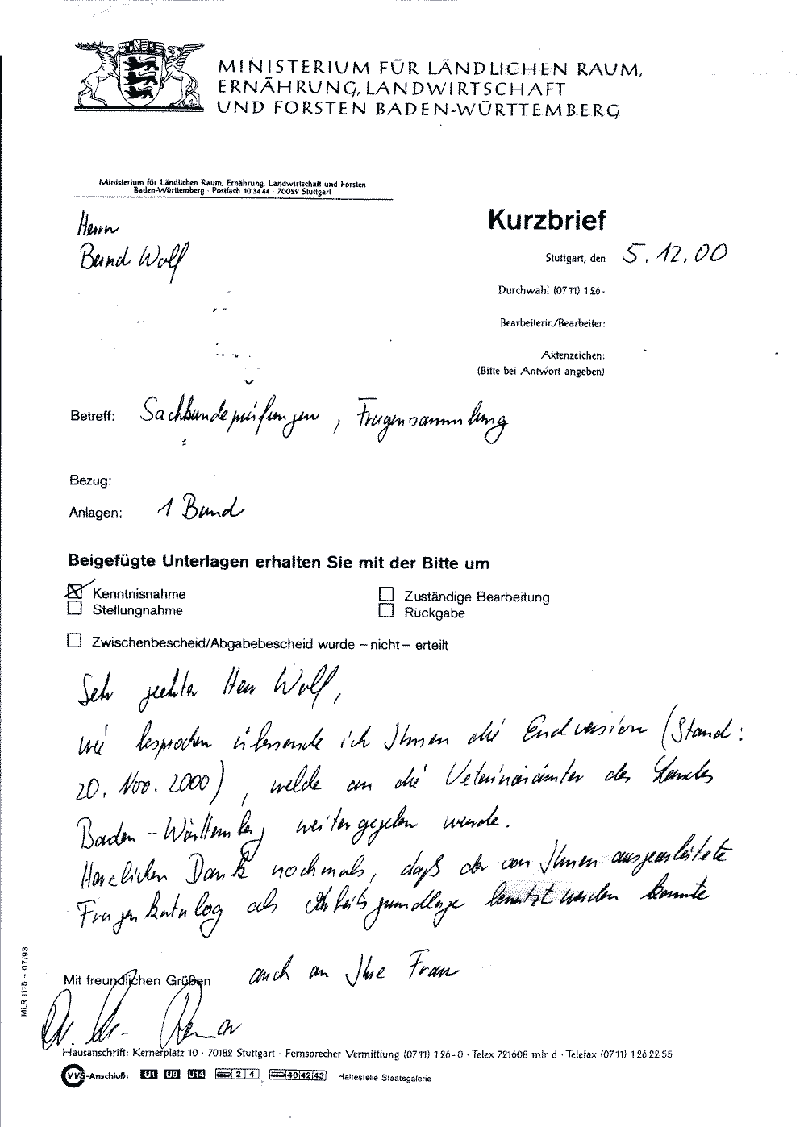 MINISTERIUM FÜR LÄNDLICHEN RAUM,
ERNÄHRUNG, LANDWIRTSCHAFT
UND FORSTEN BADEN-WÜRTTEMBERG
Ministerium für Ländlichen Raum, Ernährung, Landwirtschaft und Forsten
Baden-Württemberg · Postfach 103444 · 70029 Stuttgart
Herrn
Bernd Wolf
Kurzbrief
Stuttgart, den 5.12.00
Durchwahl (0711) 126-
Bearbeiterin/Bearbeiter:
Aktenzeichen:
(Bitte bei Antwort angeben)
Betreff: Sachkundeprüfungen, Fragensammlung
Bezug:
Anlagen: 1 Bund
Beigefügte Unterlagen erhalten Sie mit der Bitte um
Kenntnisnahme
Zuständige Bearbeitung
Stellungnahme
Rückgabe
Zwischenbescheid/Abgabebescheid wurde – nicht – erteilt
Sehr geehrter Herr Wolf,
wie besprochen übersende ich Ihnen die Endversion (Stand:
20. Nov. 2000), welche an die Veterinärämter des Landes
Baden-Württemberg weitergegeben wurde.
Herzlichen Dank nochmals, daß der von Ihnen ausgearbeitete
Fragenkatalog als Arbeitsgrundlage benutzt werden konnte
Mit freundlichen Grüßen auch an Ihre Frau
MLR 115 – 07/93
Hausanschrift: Kernerplatz 10 · 70182 Stuttgart · Fernsprecher Vermittlung (0711) 126-0 · Telex 721608 mlr d · Telefax (0711) 1262255
VVS-Anschluß: U1 U9 U14 2 4 40 42 43 Haltestelle Staatsgalerie